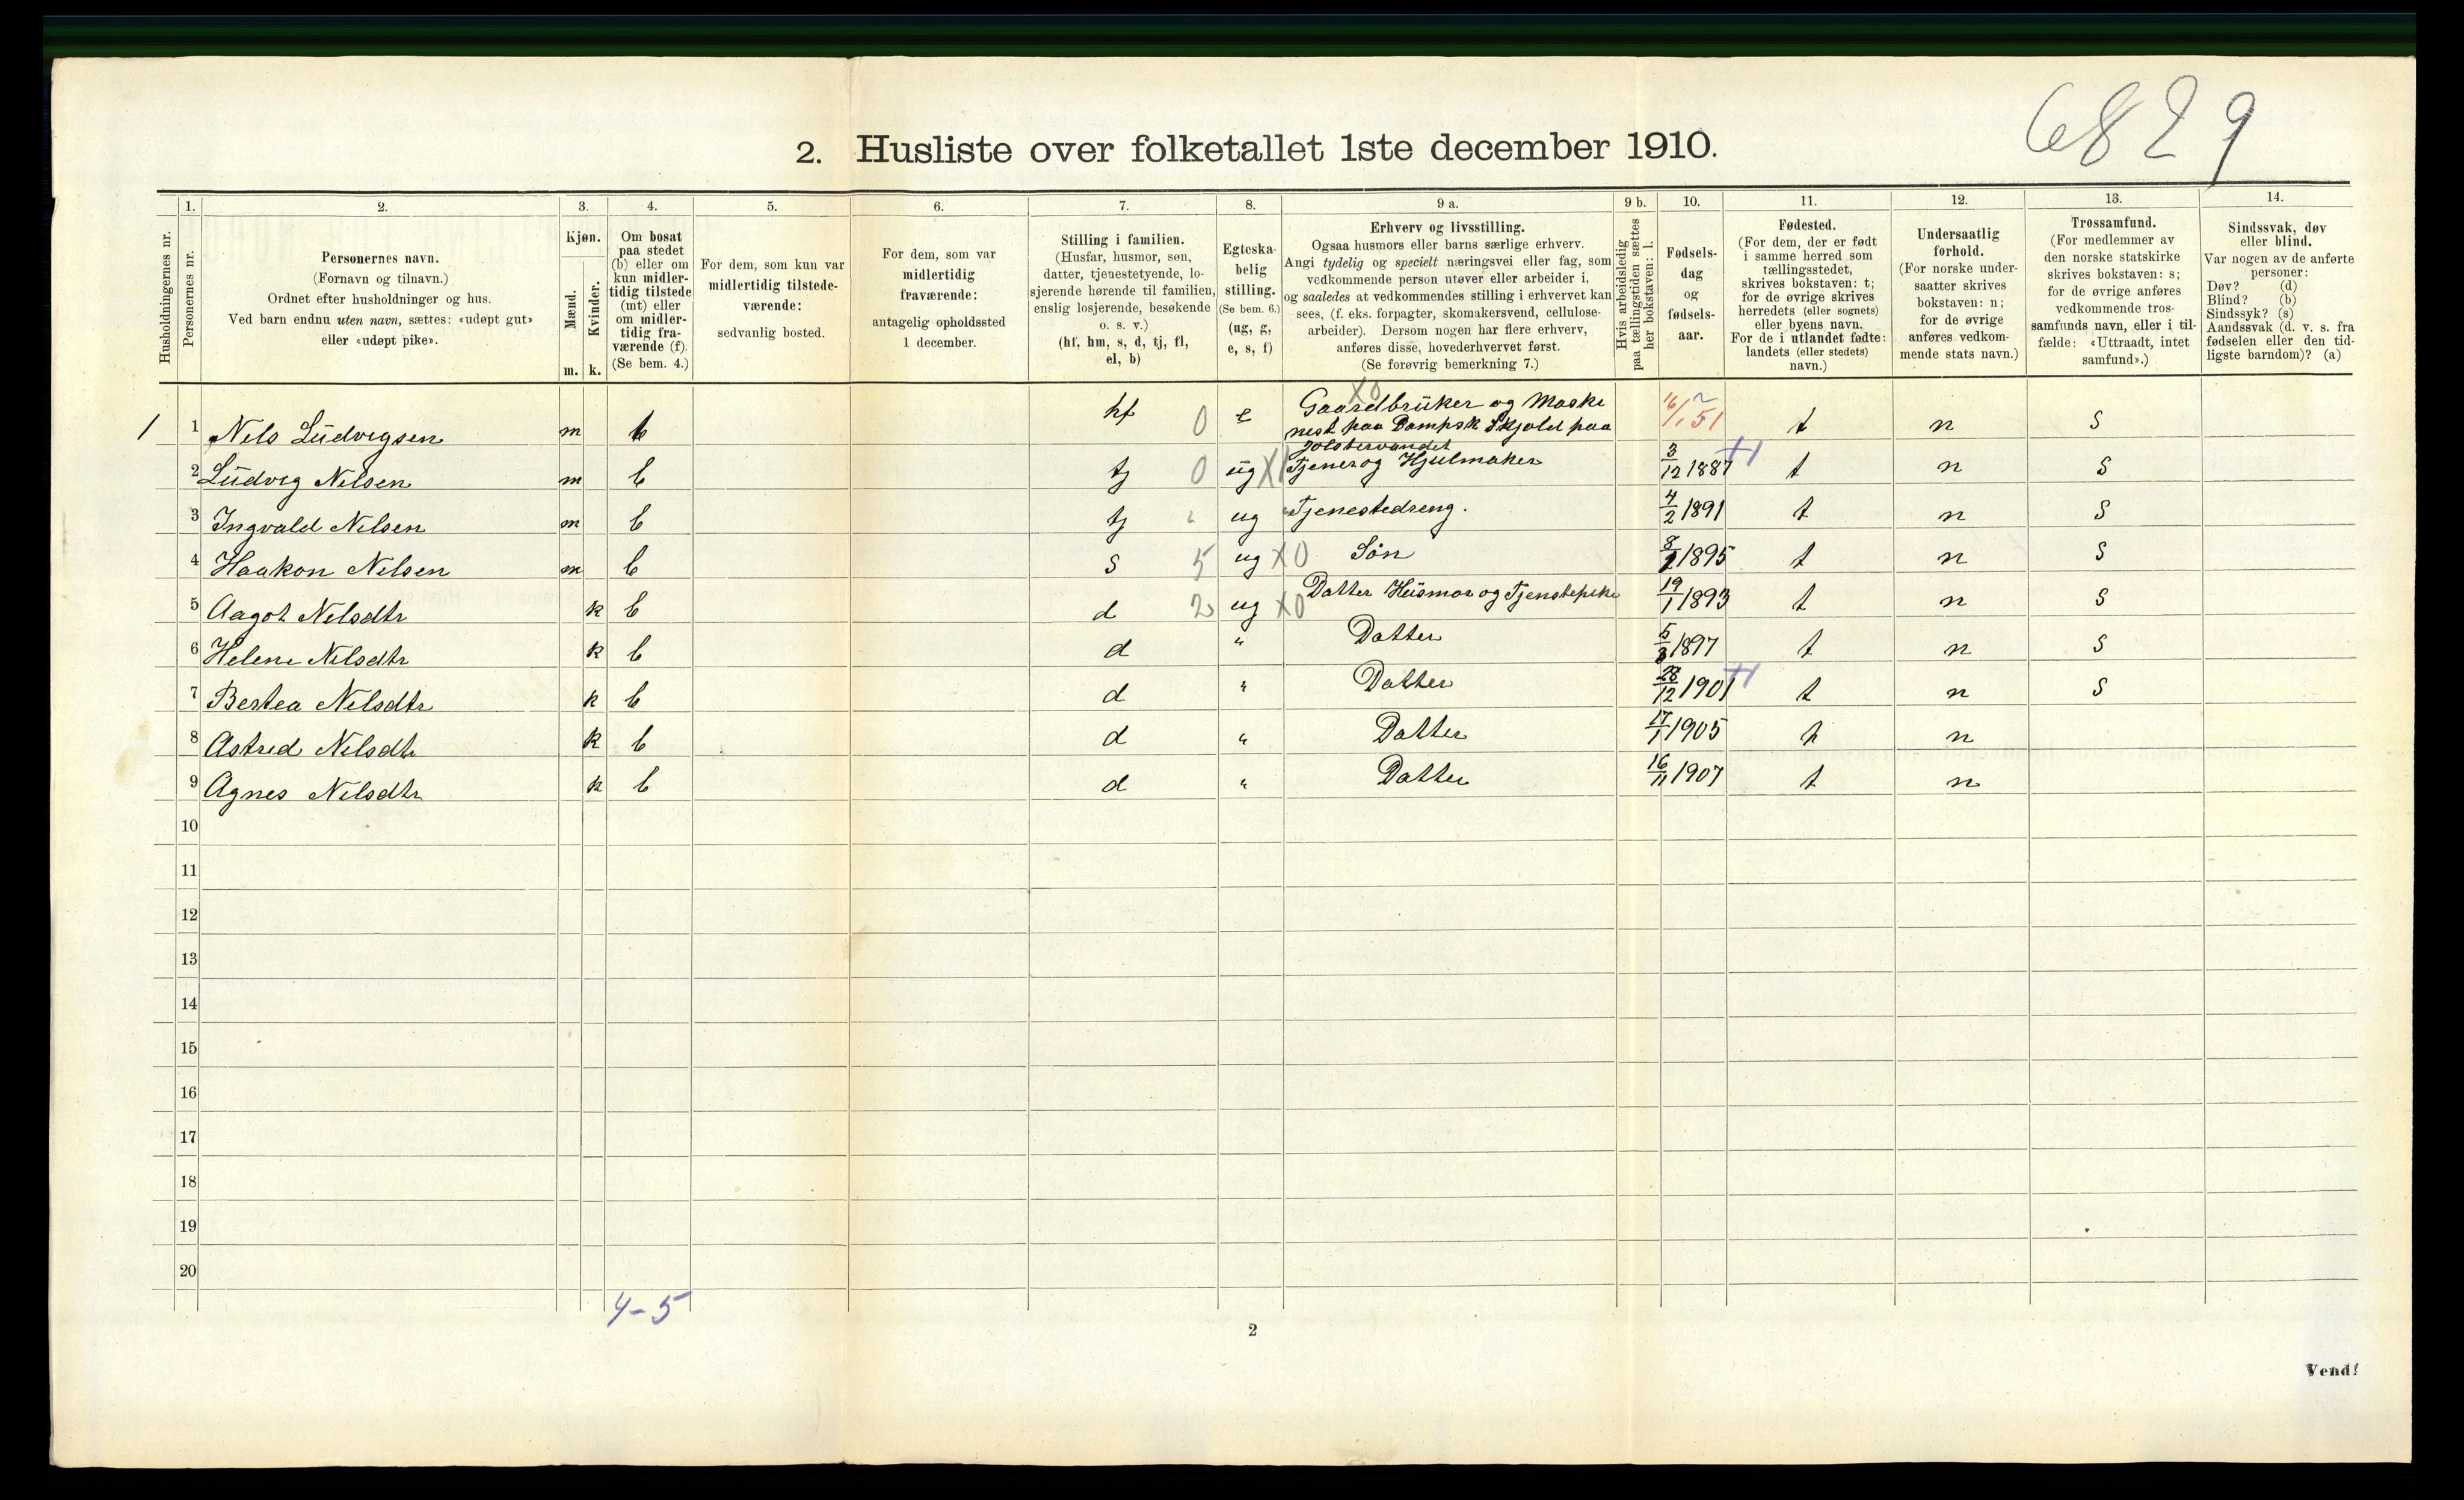 6829
2. Husliste over folketallet 1ste december 1910.
Husholdningernes nr.
1.
Personernes nr.
2.
Personernes navn.
(Fornavn og tilnavn.)
Ordnet efter husholdninger og hus.
Ved barn endnu uten navn, sættes: «udøpt gut»
eller «udøpt pike».
3.
Kjøn.
Mænd.
Kvinder.
m. k.
4.
Om bosat
paa stedet
(b) eller om
kun midler-
tidig tilstede
(mt) eller
om midler-
tidig fra-
værende (f).
(Se bem. 4.)
5.
For dem, som kun var
midlertidig tilstede-
værende:
sedvanlig bosted.
6.
For dem, som var
midlertidig
fraværende:
antagelig opholdssted
1 december.
7.
Stilling i familien.
(Husfar, husmor, søn,
datter, tjenestetyende, lo-
sjerende hørende til familien,
enslig losjerende, besøkende
o. s. v.)
(hf, hm, s, d, tj, fl,
el, b)
8.
Egteska-
belig
stilling.
(Se bem. 6.)
(ug, g,
e, s, f)
9 a.
Erhverv og livsstilling.
Ogsaa husmors eller barns særlige erhverv.
Angi tydelig og specielt næringsvei eller fag, som
vedkommende person utøver eller arbeider i,
og saaledes at vedkommendes stilling i erhvervet kan
sees, (f. eks. forpagter, skomakersvend, cellulose-
arbeider). Dersom nogen har flere erhverv,
anføres disse, hovederhvervet først.
(Se forøvrig bemerkning 7.)
9 b.
Hvis arbeidsledig
paa tællingstiden sættes
her bokstaven: l.
10.
Fødsels-
dag
og
fødsels-
aar.
11.
Fødested.
(For dem, der er født
i samme herred som
tællingsstedet,
skrives bokstaven: t;
for de øvrige skrives
herredets (eller sognets)
eller byens navn.
For de i utlandet fødte:
landets (eller stedets)
navn.)
12.
Undersaatlig
forhold.
(For norske under-
saatter skrives
bokstaven: n;
for de øvrige
anføres vedkom-
mende stats navn.)
13.
Trossamfund.
(For medlemmer av
den norske statskirke
skrives bokstaven: s;
for de øvrige anføres
vedkommende tros-
samfunds navn, eller i til-
fælde: «Uttraadt, intet
samfund».)
14.
Sindssvak, døv
eller blind.
Var nogen av de anførte
personer:
Døv? (d)
Blind? (b)
Sindssyk? (s)
Aandssvak (d. v. s. fra
fødselen eller den tid-
ligste barndom)? (a)
X0
1 1 Nils Ludvigsen m b hf 0 e Gaardbruker og Maski
nest paa Dampsk Skjold paa
Jolstervandet 16/1 51 t n S
2 Ludvig Nilsen m b tj 0 ug X1 Tjener og Hjulmaker 3/12 1887 t n S
3 Ingvald Nilsen m b tj " ug " Tjenestedreng. 4/2 1891 t n S
4 Haakon Nilsen m b s 5 ug X0 Søn 8/2 1895 t n S
5 Aagot Nilsdtr k b d 2 ug X0 Datter Husmor og Tjenstepike 19/1 1893 t n S
6 Helene Nilsdtr k b d " Datter 5/3 1897 t n S
7 Bertea Nilsdtr k b d " Datter 28/12 1901 t n S
8 Astrid Nilsdtr k b d " Datter 17/1 1905 t n
9 Agnes Nilsdtr k b d " Datter 16/11 1907 t n
10
11
12
13
14
15
16
17
18
19
20
4-5
2
Vend!